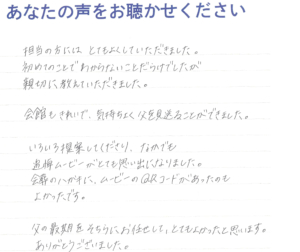 あなたの声をお聴かせください
担当の方には とてもよくしていただきました。
初めてのことで わからないことだらけでしたが
親切に教えていただきました。
会館もきれいで、気持ちよく父を見送ることができました。
いろいろ提案してくださり、なかでも
追悼ムービーがとても思い出になりました。
会葬のハガキに、ムービーのQRコードがあったのも
よかったです。
父の最期をそちらにお任せして、とてもよかったと思います。
ありがとうございました。